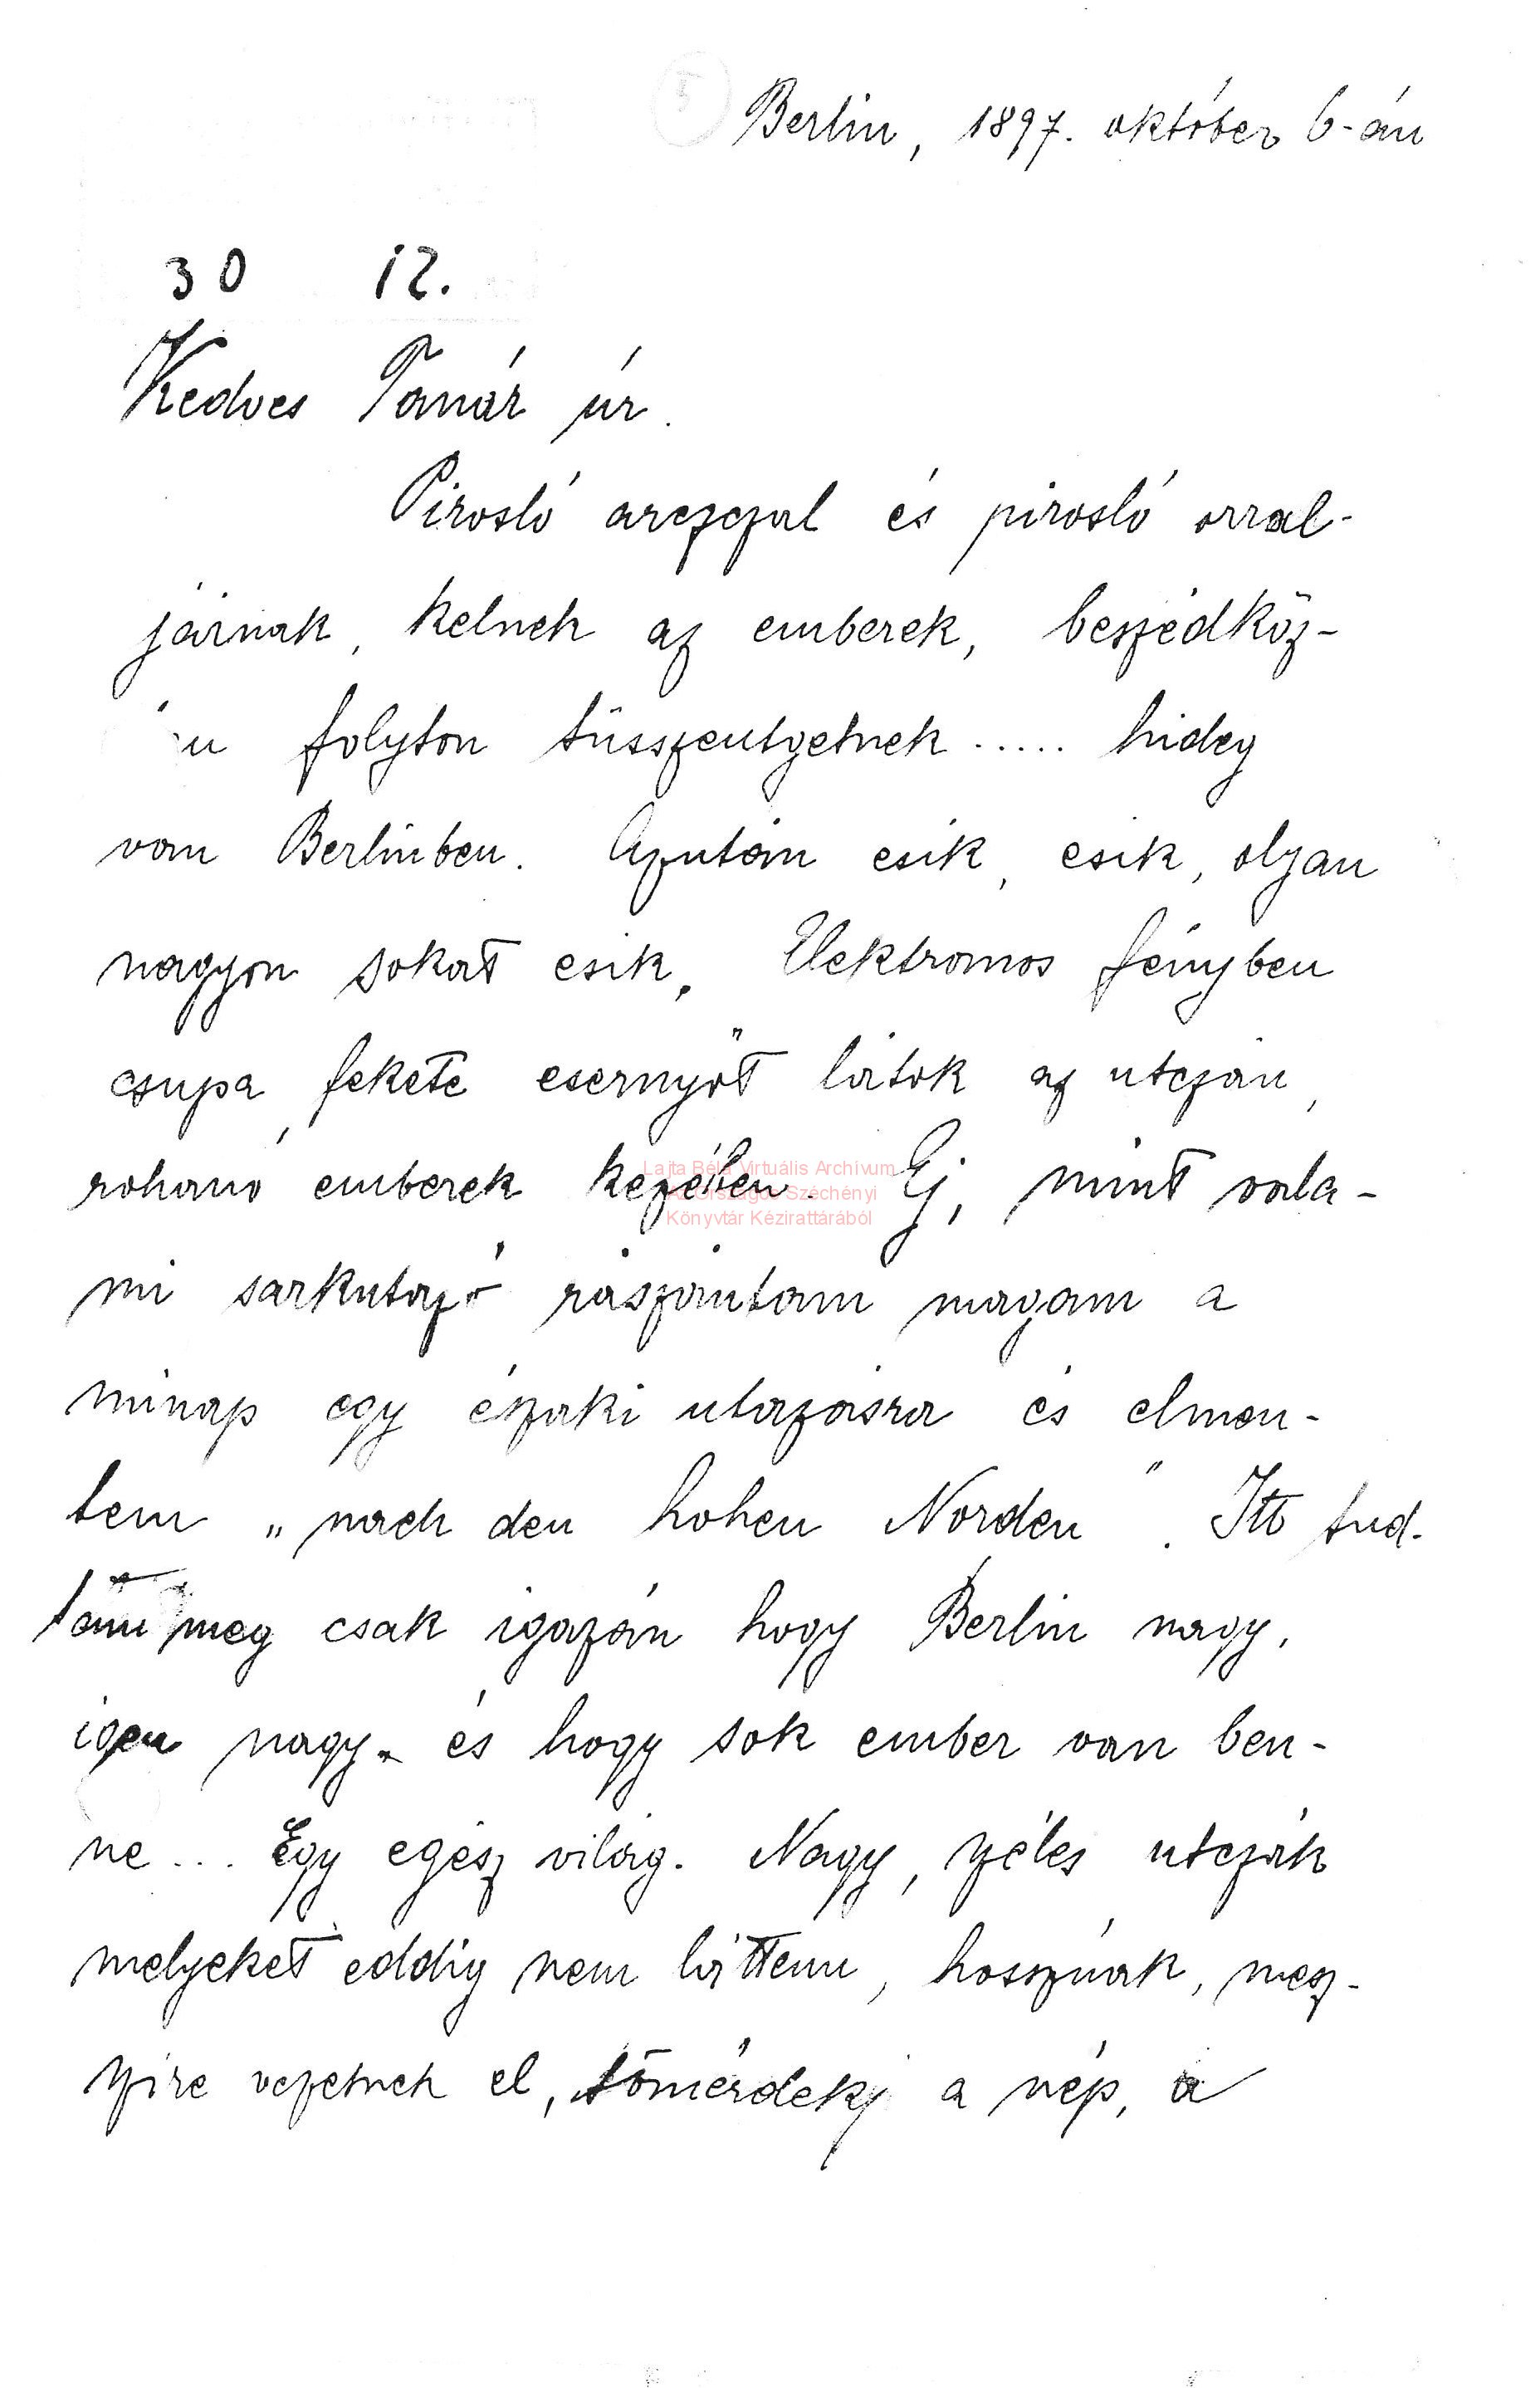 Berlin, 1897. október 6-án
30 12.
Kedves Tanár úr.
Pirosló arczczal és pirosló orral-
járnak, kelnek az emberek, beszédköz-
folyton tüsszentgetnek ..... hideg
van Berlinben. Azután esik, esik, olyan
nagyon sokat esik. Elektromos fényben
csupa fekete esernyőt látok az utczán,
rohanó emberek kezében. Ej, mint vala-
mi sarkutazó rászántam magam a
minap egy északi utazásra és elmen-
tem „nach den hohen Norden". Itt tud-
tam meg csak igazán hogy Berlin nagy,
igen nagy és hogy sok ember van ben-
ne ... Egy egész világ. Nagy, széles utczák
melyeket eddig nem láttem, hosszúak, mesz-
szire vezetnek el, tömérdek a nép, a
Lajta Béla Virtuális Archívum
Az Országos Széchényi
Könyvtár Kézirattárából